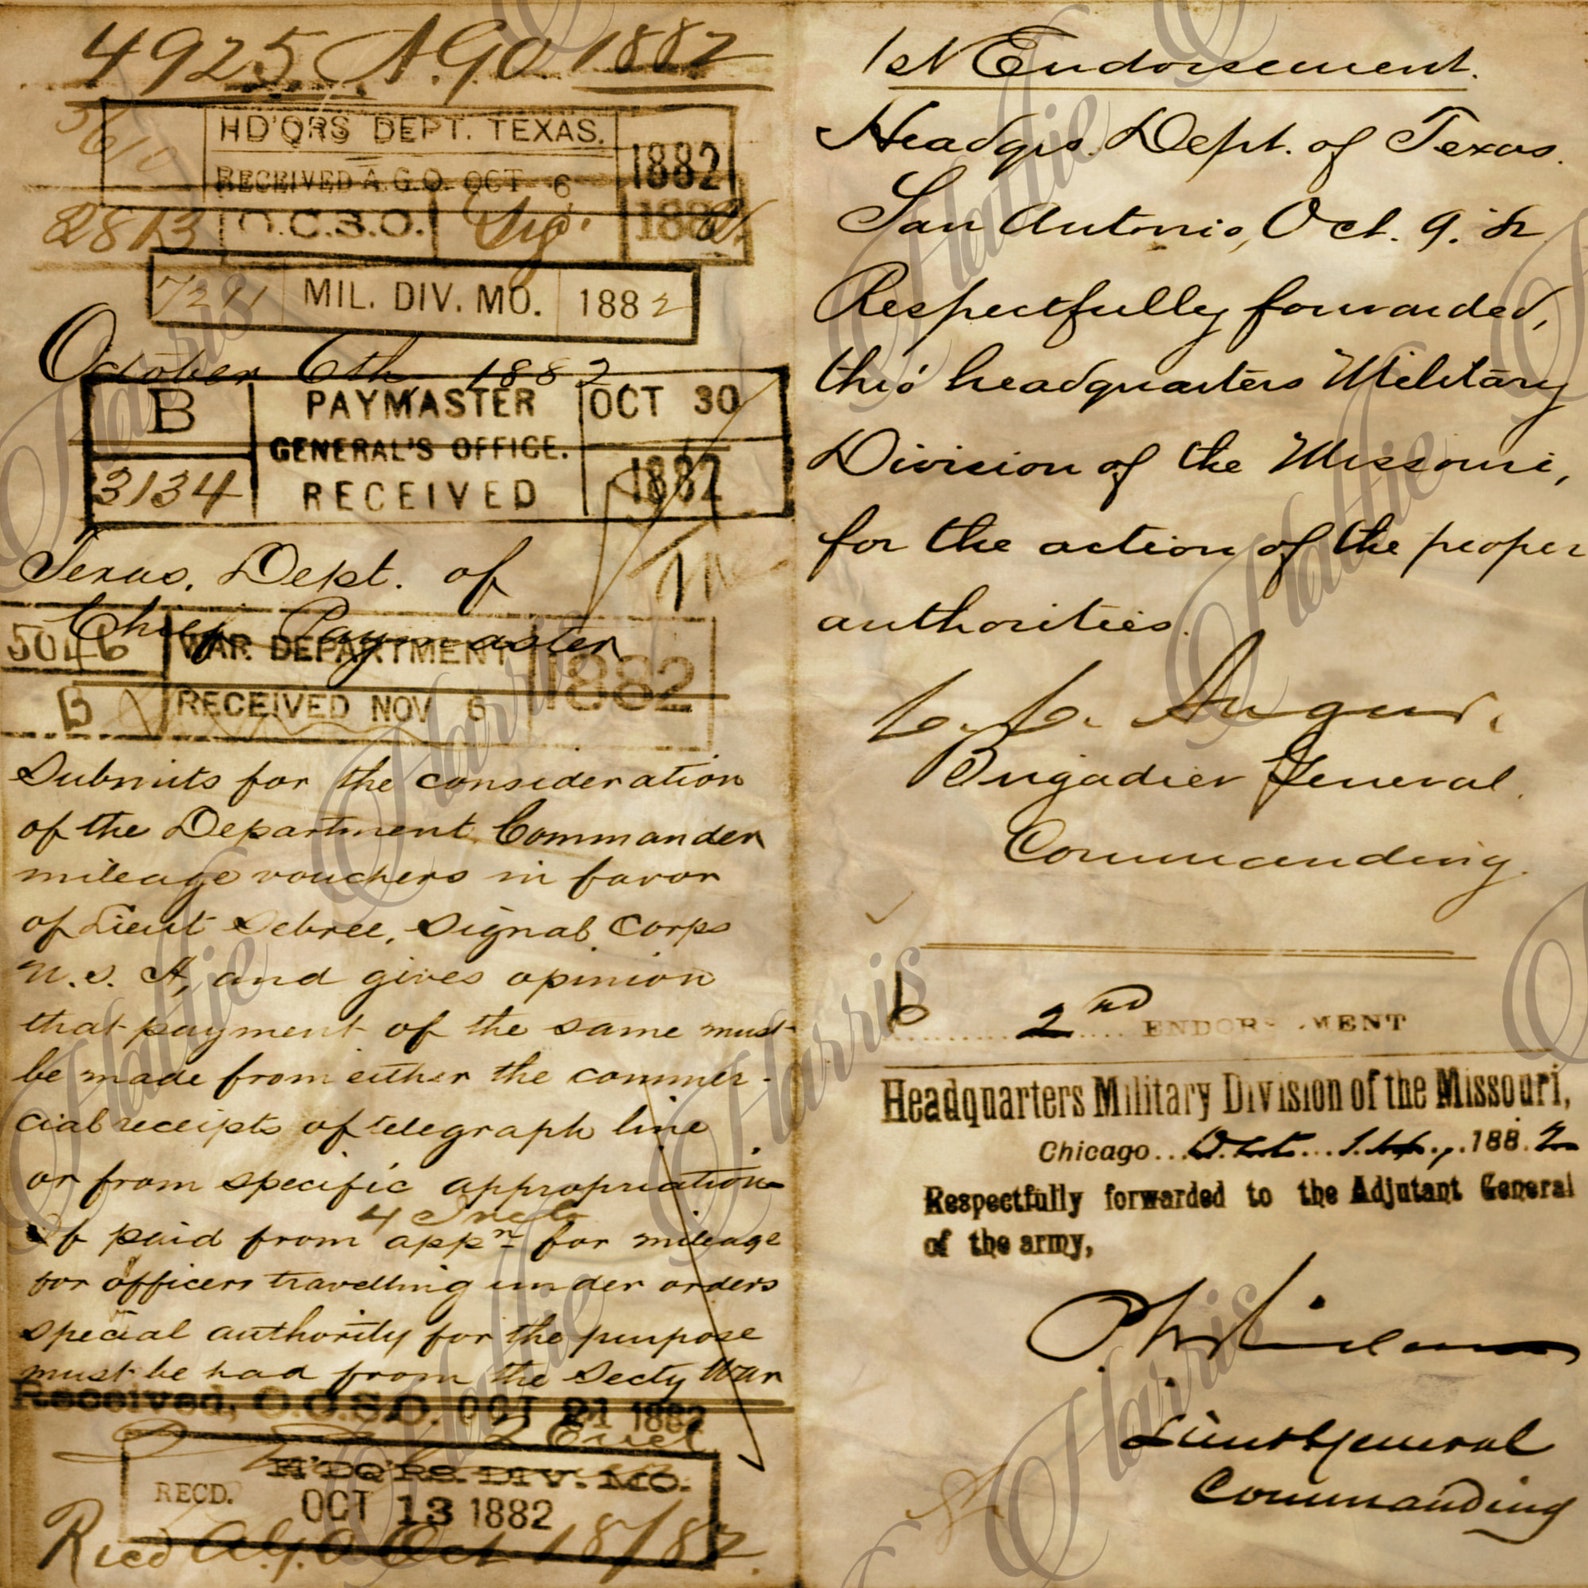 4925 A.G.O. 1882
HD'QRS DEPT. TEXAS. 1882
RECEIVED A.G.O. OCT 6
2813 O.C.S.O. Sig. 1882
7211 MIL. DIV. MO. 1882
October 6th 1882
B PAYMASTER OCT 30
GENERAL'S OFFICE. 1882
3134 RECEIVED
Texas, Dept. of
Chief Paymaster
5046 WAR DEPARTMENT 1882
B RECEIVED NOV 6
Submits for the consideration
of the Department Commander
mileage vouchers in favor
of Lieut Sebree, Signal Corps
U.S. A, and gives opinion
that payment of the same must
be made from either the commer-
cial receipts of telegraph line
or from specific appropriation
4 Incls
If paid from appn for mileage
for officers travelling under orders
special authority for the purpose
must be had from the Secty War
Received, O.C.S.O. OCT 21 1882
2 Encl
H'DQ'RS. DIV. MO.
RECD. OCT 13 1882
Recd A.G.O. Oct 18/82.
1st Endorsement.
Headqrs. Dept. of Texas.
San Antonio, Oct. 9. 82
Respectfully forwarded,
thro' headquarters Military
Division of the Missouri,
for the action of the proper
authorities.
C. C. Augur.
Brigadier General
Commanding.
6 2nd ENDORSEMENT
Headquarters Military Division of the Missouri,
Chicago... Oct... 14,..1882
Respectfully forwarded to the Adjutant General
of the army,
P H Sheridan
Lieut General
Commanding
Hattie Harris
Hattie Harris
Hattie Harris
Hattie Harris